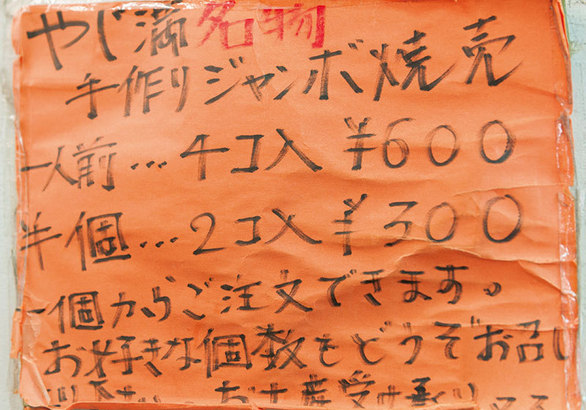 やじ満名物
手作りジャンボ焼売
一人前…4コ入 ¥600
半個…2コ入 ¥300
一個からご注文できます。
お好きな個数をどうぞお召し